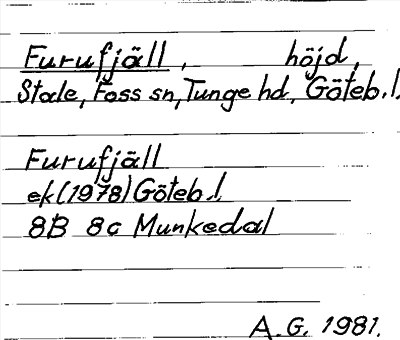 Furufjäll, höjd,
Stale, Foss sn, Tunge hd., Göteb.l.
Furufjäll
ek (1978) Göteb.l.
8B 8c Munkedal
A.G. 1981.